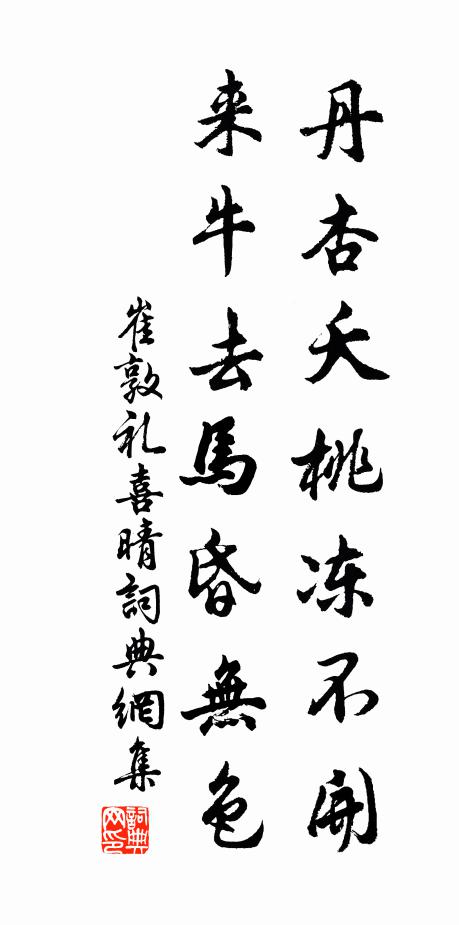 丹杏夭桃冻不開
来牛去馬昏無色
崔敦礼喜晴詞典網集
詞典网印